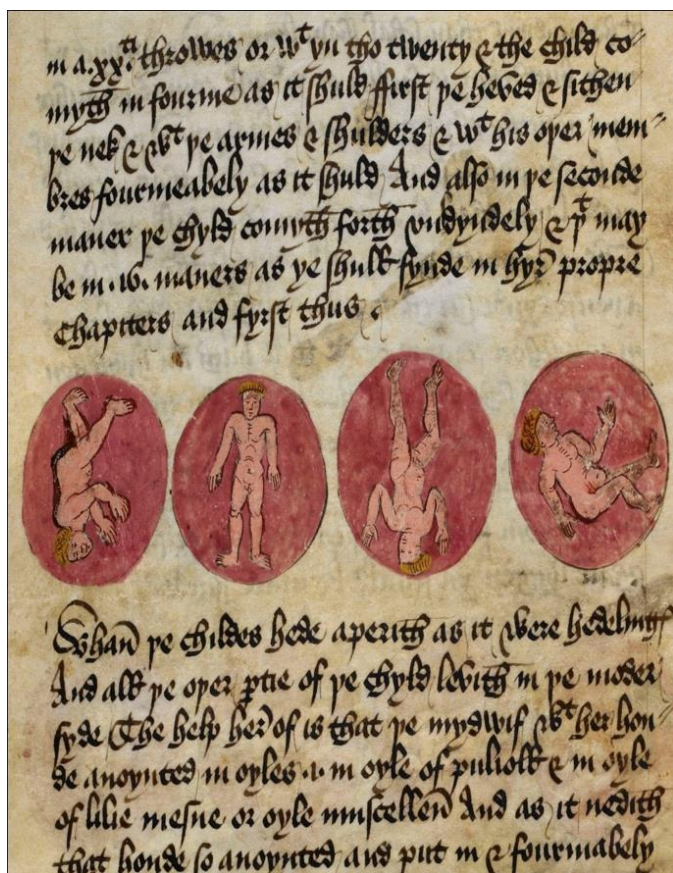 in a .xx.ti throwes or wt yn tho twenty & the child co-
myth in fourme as it shuld ffirst þe heved & sithen
þe nek & wt þe armes & shulders & wt his oþer mem-
bres fourmeabely as it shuld And also in þe seconde
maner þe chyld comyth forth vndyndely & þt may
be in maners as ye shull fynde in hyr propre
Chapiters and fyrst thus
Whan þe childes hede aperith as it were hedeling
And all þe oþer ptie of þe chyld levith in þe moder
syde The help her of is that þe mydwif wt her hon-
de anoynted in oyles .i. in oyle of pulioll & in oyle
of lilie or oyle muscellen And as it nedith
that honde so anoynted and put in & fourmabely